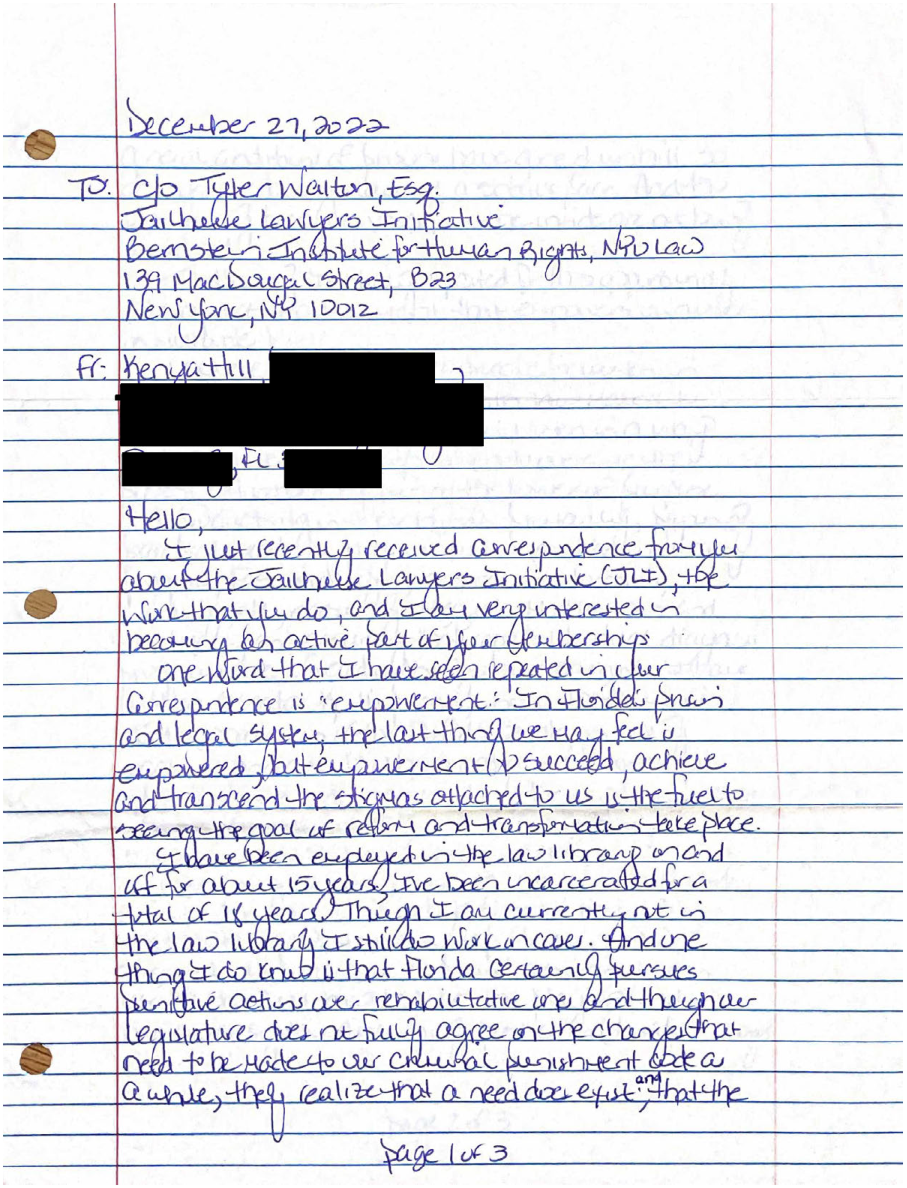 December 27, 2022
To: c/o Tyler Walton, Esq.
Jailhouse Lawyers Initiative
Bernstein Institute for Human Rights, NYU Law
139 MacDougal Street, B23
New York, NY 10012
Fr: Kenya Hill,
, FL
Hello,
I just recently received correspondence from you
about the Jailhouse Lawyers Initiative (JLI), the
work that you do, and I am very interested in
becoming an active part of your membership.
One word that I have seen repeated in your
correspondence is "empowerment." In Florida's prison
and legal system, the last thing we may feel is
empowered, but empowerment to succeed, achieve
and transcend the stigmas attached to us is the fuel to
seeing the goal of reform and transformation take place.
I have been employed in the law library on and
off for about 15 years, I've been incarcerated for a
total of 18 years. Though I am currently not in
the law library I still do work on cases. And one
thing I do know is that Florida certainly pursues
punitive actions over rehabilitative ones and though our
legislature does not fully agree on the changes that
need to be made to our criminal punishment code as
a while, they realize that a need does exist, and that the
page 1 of 3